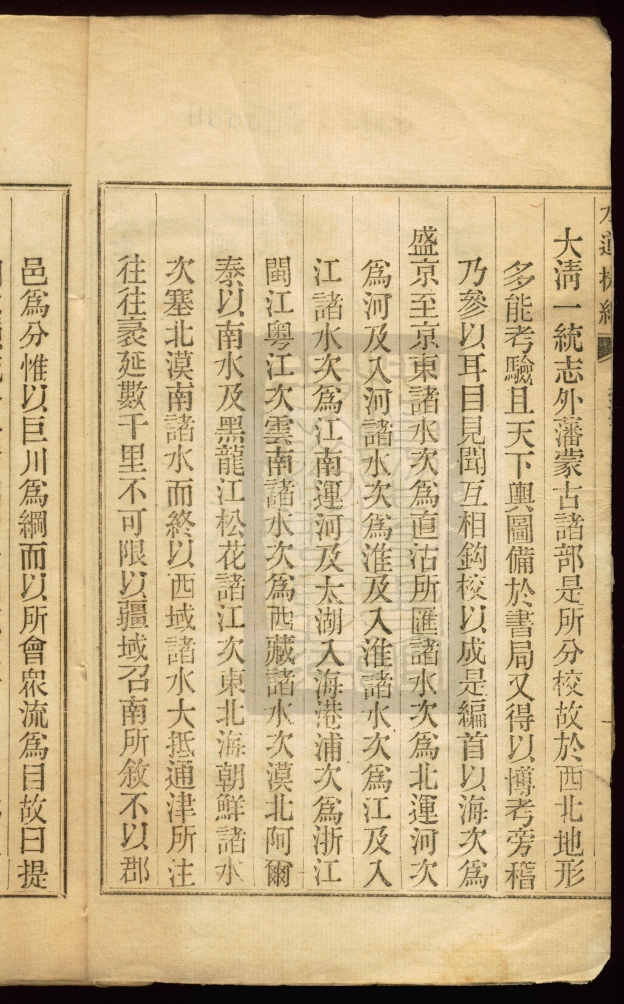 水道提綱
大清一統志外藩蒙古諸部是所分校故於西北地形
多能考驗且天下輿圖備於書局又得以博考旁稽
乃參以耳目見聞互相鈎校以成是編首以海次為
盛京至京東諸水次為直沽所匯諸水次為北運河次
為河及入河諸水次為淮及入淮諸水次為江及入
江諸水次為江南運河及太湖入海港浦次為浙江
閩江粤江次雲南諸水次為西藏諸水次漠北阿爾
泰以南水及黑龍江松花諸江次東北海朝鮮諸水
次塞北漠南諸水而終以西域諸水大抵通津所注
往往袤延數千里不可限以疆域召南所敘不以郡
邑為分惟以巨川為綱而以所會衆流為目故曰提